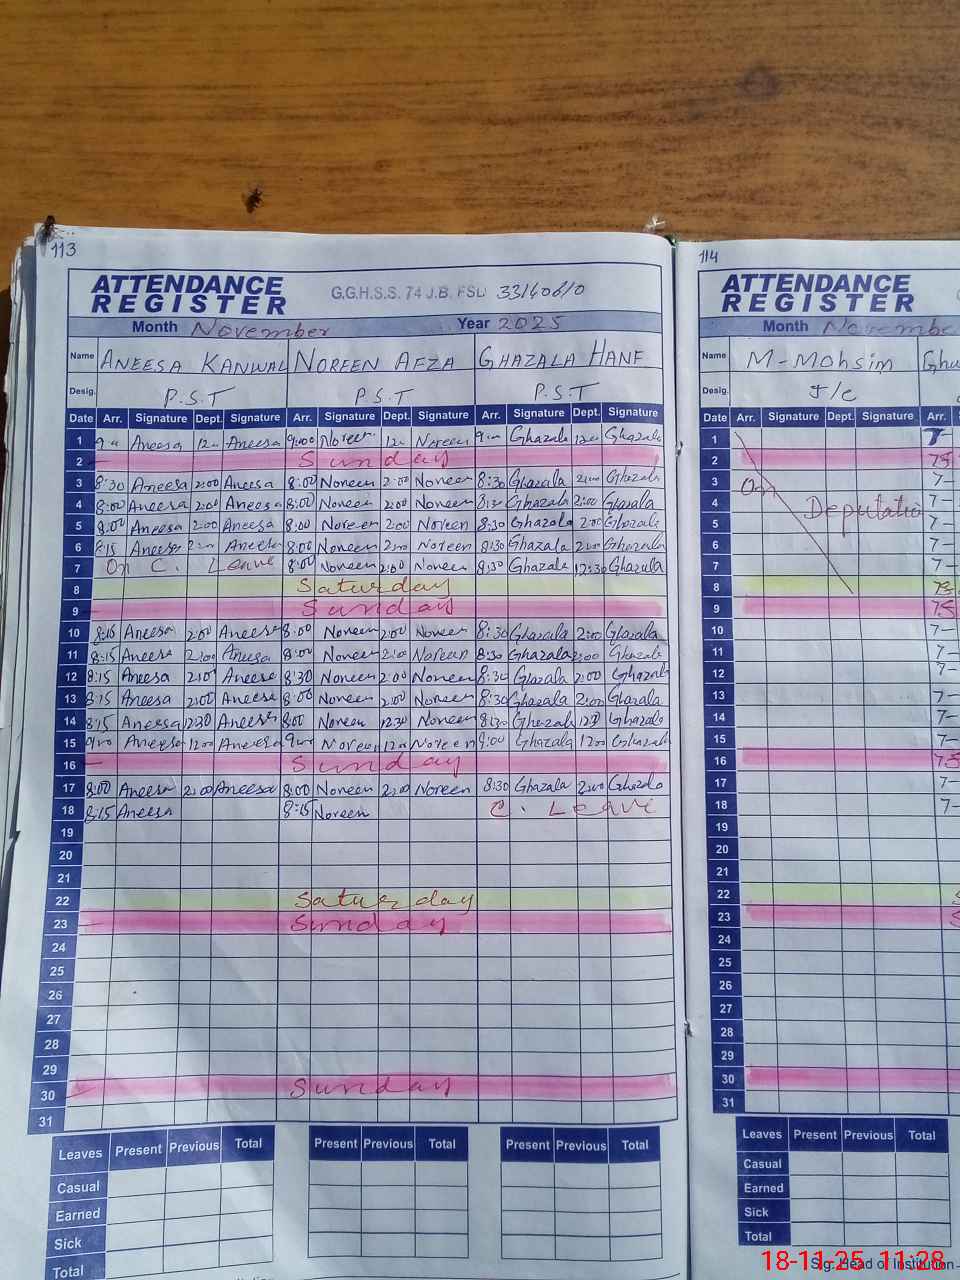 113
ATTENDANCE REGISTER G.G.H.S.S. 74 J.B. FSD 33160610
Month November Year 2025
Name ANEESA KANWAL NOREEN AFZA GHAZALA HANF
Desig. P.S.T P.S.T P.S.T
Date Arr. Signature Dept. Signature Arr. Signature Dept. Signature Arr. Signature Dept. Signature
1 Aneesa Aneesa 9:00 Noreen Noreen Ghazala Ghazala
2 Sunday
3 8:30 Aneesa 2:00 Aneesa 8:00 Noreen 2:00 Noreen 8:30 Ghazala 2:00 Ghazala
4 8:00 Aneesa 2:00 Aneesa 8:00 Noreen 2:00 Noreen 8:30 Ghazala 2:00 Ghazala
5 8:00 Aneesa 2:00 Aneesa 8:00 Noreen 2:00 Noreen 8:30 Ghazala 2:00 Ghazala
6 8:15 Aneesa 2:00 Aneesa 8:00 Noreen 2:00 Noreen 8:30 Ghazala 2:00 Ghazala
7 On C. Leave 8:00 Noreen 2:00 Noreen 8:30 Ghazala 12:30 Ghazala
8 Saturday
9 Sunday
10 8:15 Aneesa 2:00 Aneesa 8:00 Noreen 2:00 Noreen 8:30 Ghazala 2:00 Ghazala
11 8:15 Aneesa 2:00 Aneesa 8:00 Noreen 2:00 Noreen 8:30 Ghazala 2:00 Ghazala
12 8:15 Aneesa Aneesa 8:30 Noreen 2:00 Noreen 8:30 Ghazala 2:00 Ghazala
13 8:15 Aneesa 2:00 Aneesa 8:00 Noreen 2:00 Noreen 8:30 Ghazala 2:00 Ghazala
14 8:15 Aneesa 12:30 Aneesa 8:00 Noreen 12:30 Noreen 8:30 Ghazala Ghazala
15 Aneesa 12:00 Aneesa Noreen Noreen 9:00 Ghazala 12:00 Ghazala
16 Sunday
17 8:00 Aneesa 2:00 Aneesa 8:00 Noreen 2:00 Noreen 8:30 Ghazala 2:00 Ghazala
18 8:15 Aneesa 8:15 Noreen C. Leave
19
20
21
22 Saturday
23 Sunday
24
25
26
27
28
29
30 Sunday
31
Leaves Present Previous Total Present Previous Total Present Previous Total
Casual
Earned
Sick
Total
114
ATTENDANCE REGISTER
Month Novembe
Name M-Mohsim Ghu
Desig. J/c
Date Arr. Signature Dept. Signature Arr.
1
2
3 On 7-
4 Deputatio 7-
5 7-
6 7-
7 7-
8
9
10 7-
11 7-
12 7-
13 7-
14 7-
15 7-
16
17 7-
18 7-
19
20
21
22
23
24
25
26
27
28
29
30
31
Leaves Present Previous Total
Casual
Earned
Sick
Total
Sig. Head of Institution
18-11-25 11:28